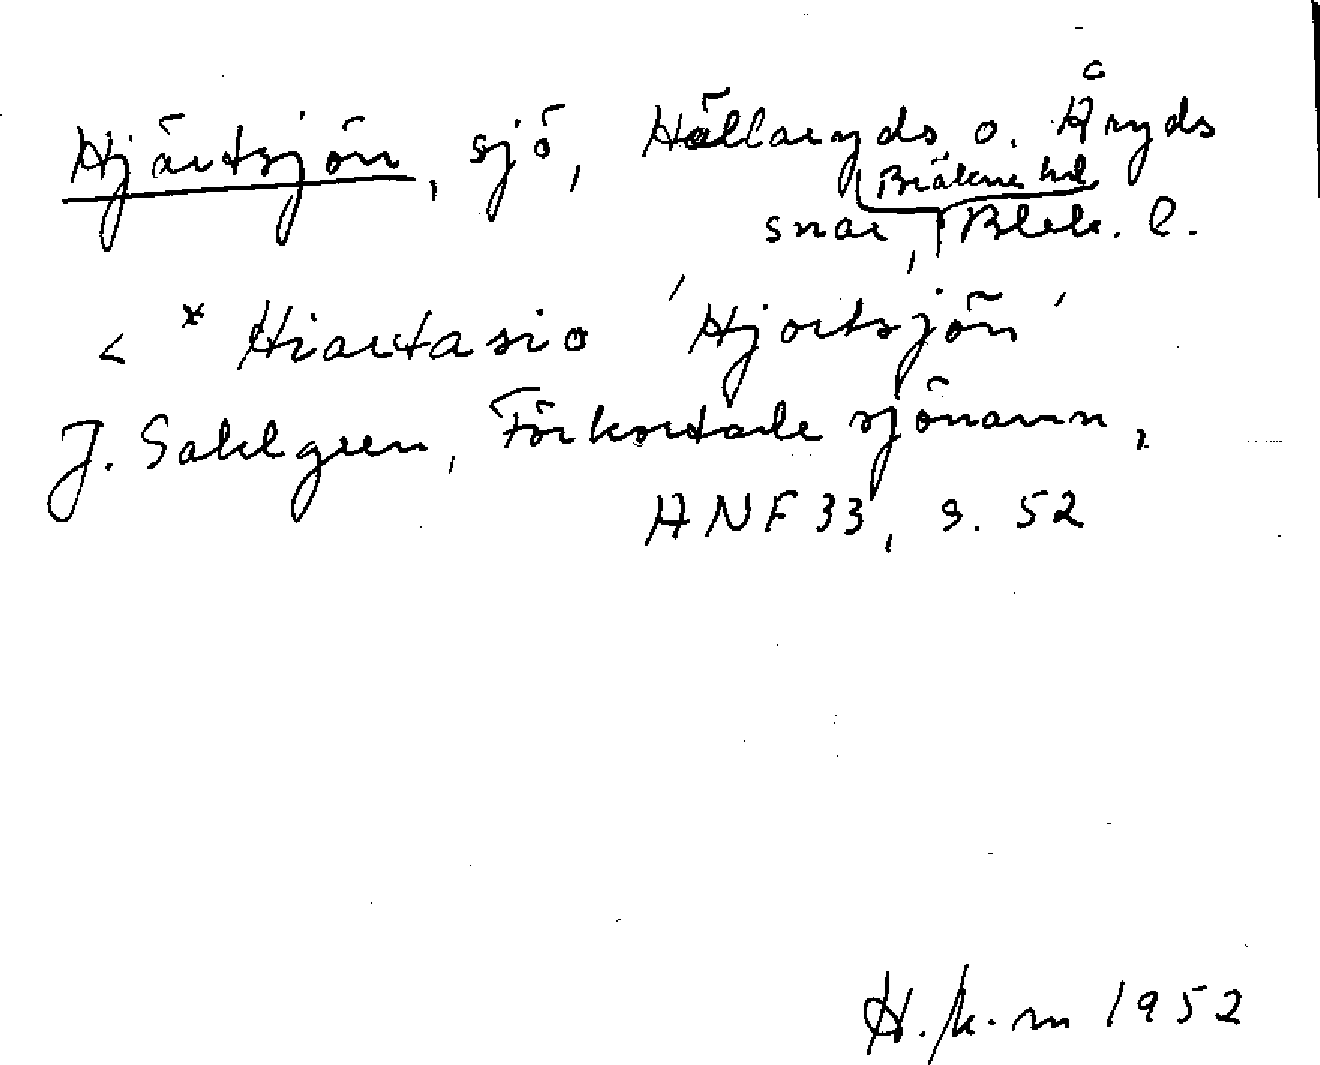 Hjärtsjön, sjö, Hällaryds o. Åryds
Bräkne hd
snar, Blek. l.
< * Hiartasio 'Hjortsjön'
J. Sahlgren, Förkortade sjönamn,
ANF 33, s. 52
H. k. m 1952